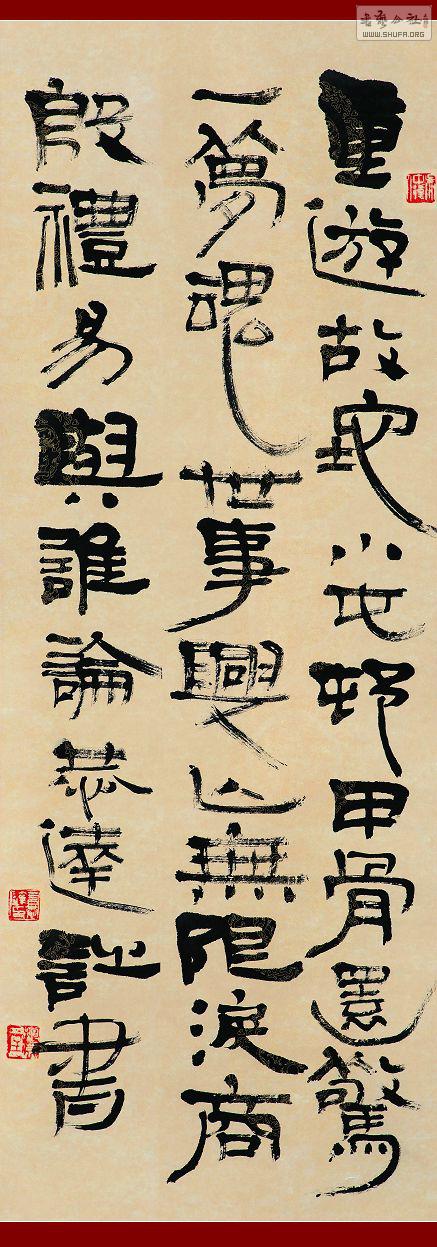 重遊故地小屯邨甲骨還驚
一夢魂世事興亡無限淚商
殷禮易與誰論恭達詩書
書藝公社
WWW.SHUFA.ORG